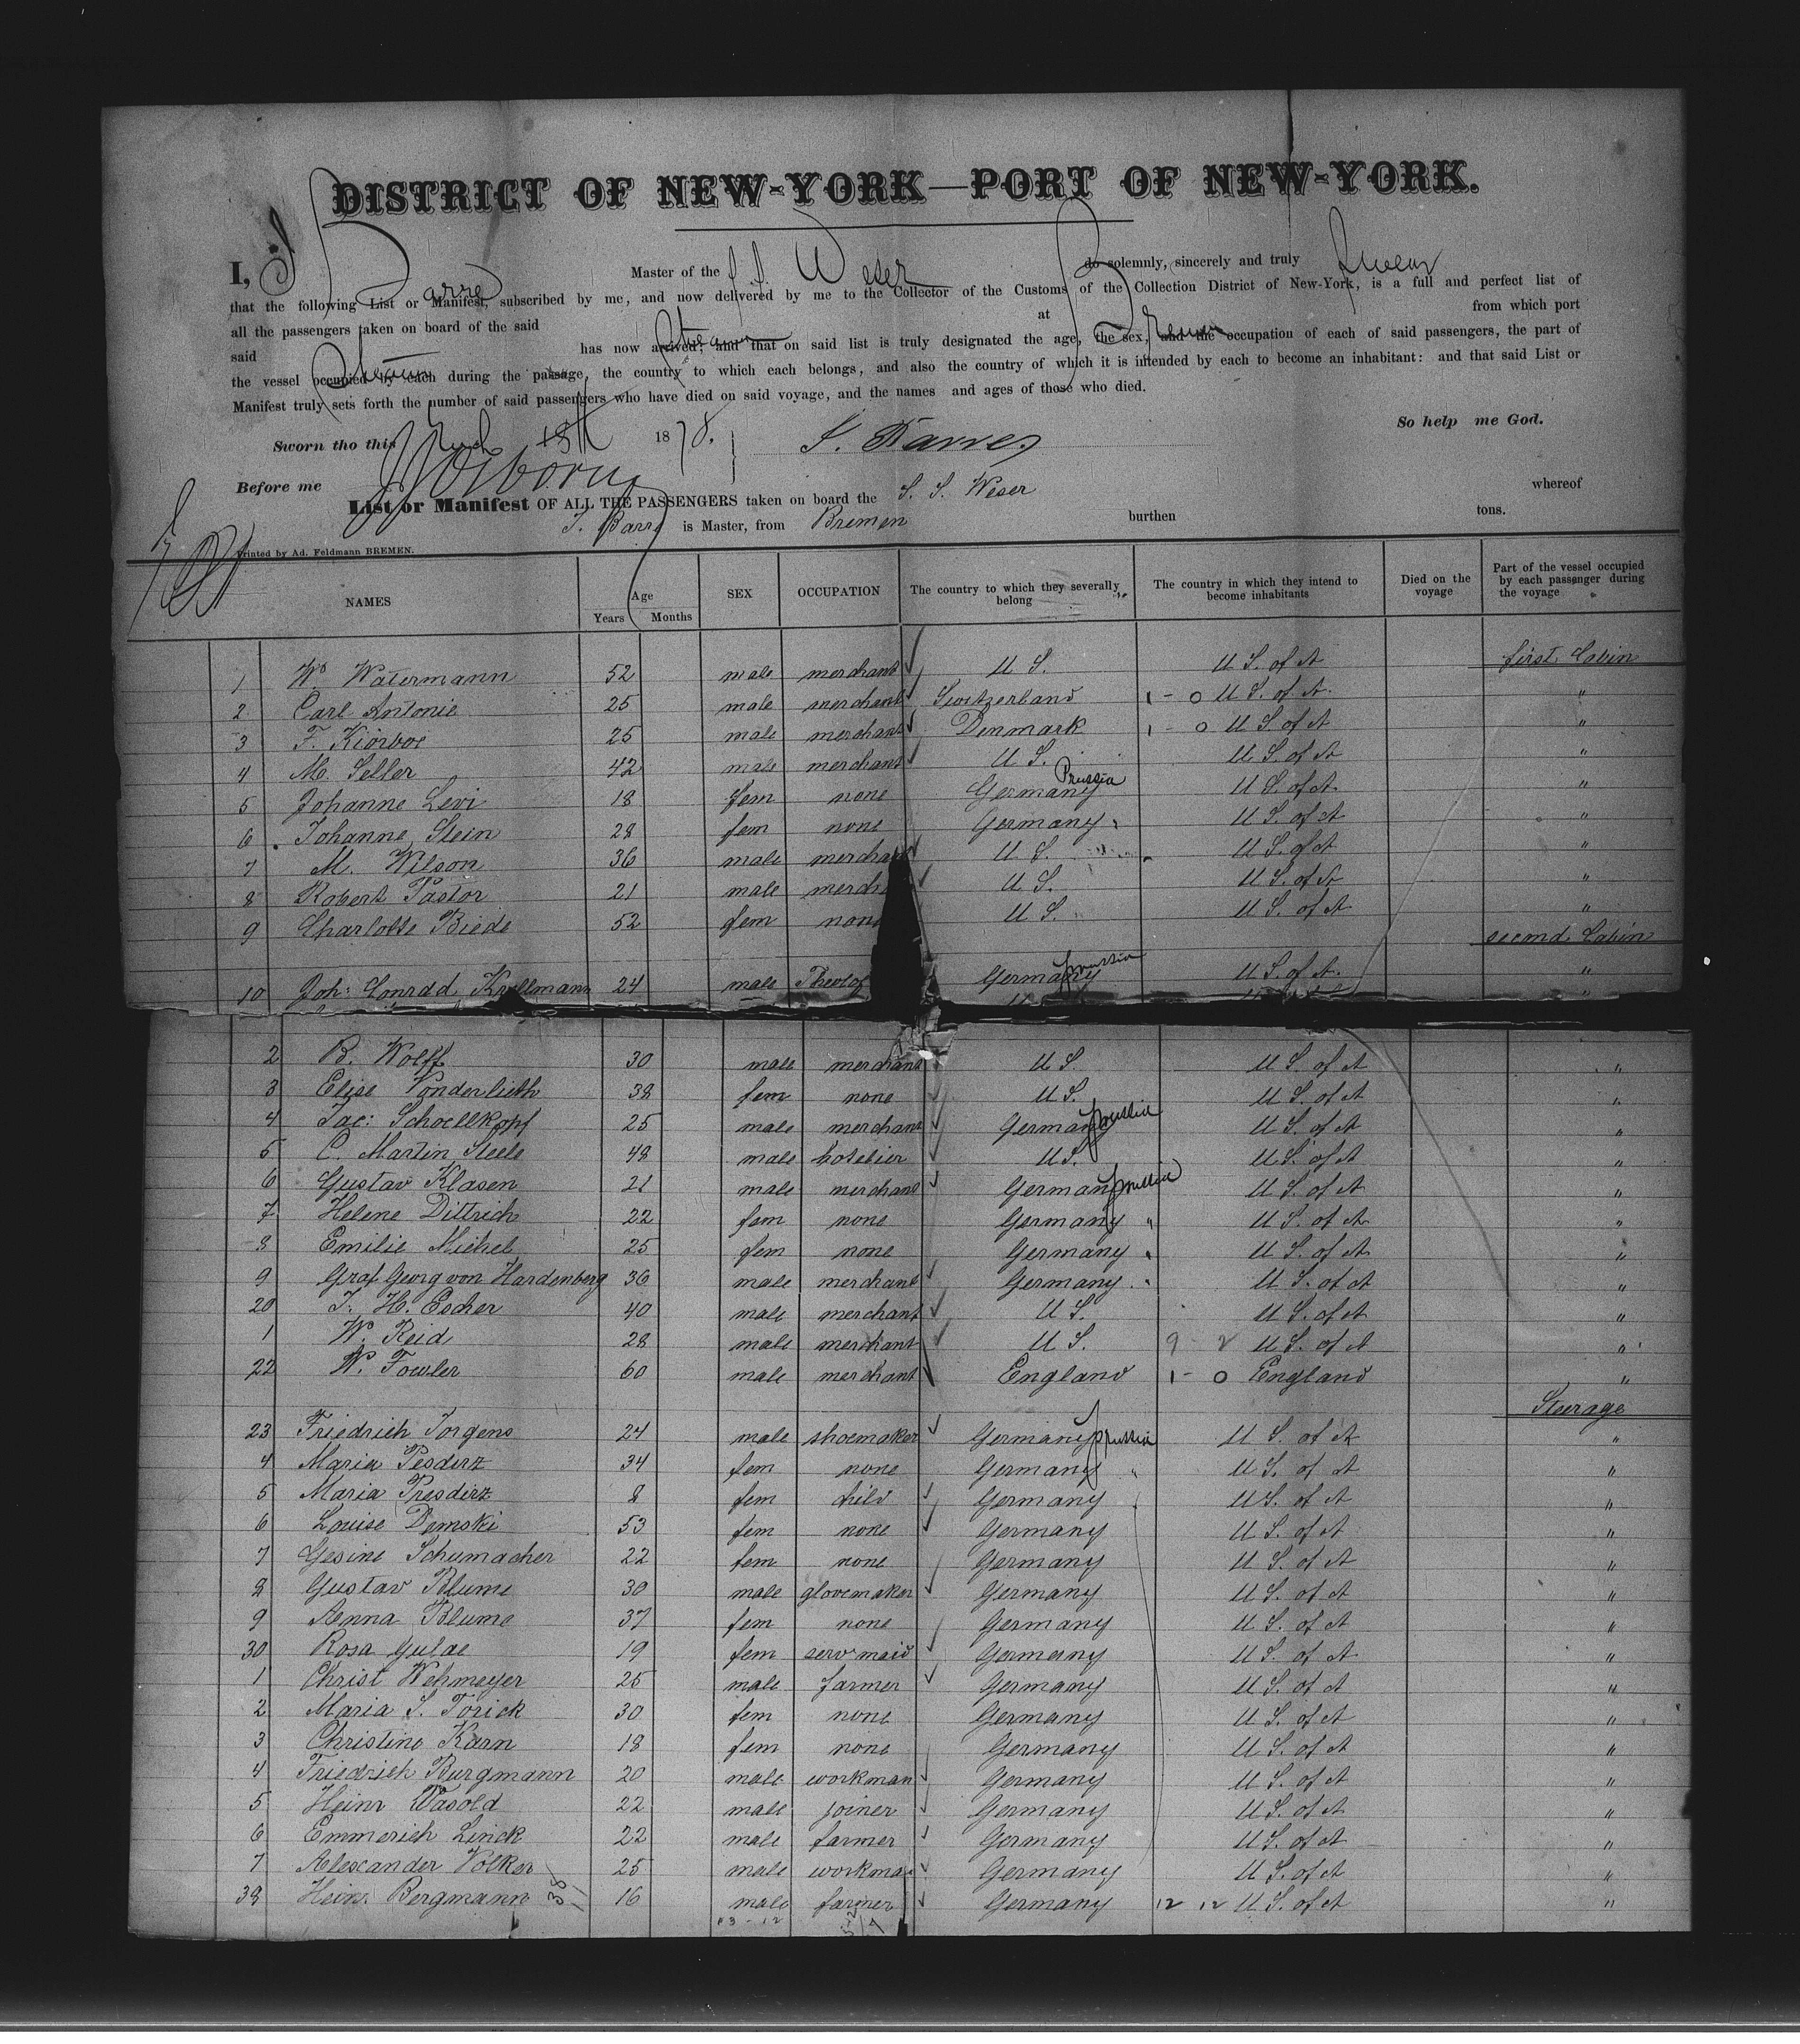 DISTRICT OF NEW-YORK—PORT OF NEW-YORK.
I, J Barre Master of the S. S. Weser do solemnly, sincerely and truly swear
that the following List or Manifest, subscribed by me, and now delivered by me to the Collector of the Customs of the Collection District of New-York, is a full and perfect list of
all the passengers taken on board of the said Steamer at Bremen from which port
said Steamer has now arrived; and that on said list is truly designated the age, the sex, and the occupation of each of said passengers, the part of
the vessel occupied by each during the passage, the country to which each belongs, and also the country of which it is intended by each to become an inhabitant: and that said List or
Manifest truly sets forth the number of said passengers who have died on said voyage, and the names and ages of those who died.
So help me God.
Sworn tho this 18th 1878. J. Barre
Before me Osborn
List or Manifest OF ALL THE PASSENGERS taken on board the S. S. Weser whereof
J. Barre is Master, from Bremen burthen tons.
Printed by Ad. Feldmann BREMEN.
NAMES Age Years Months SEX OCCUPATION The country to which they severally belong The country in which they intend to become inhabitants Died on the voyage Part of the vessel occupied by each passenger during the voyage
first Cabin
1 W. Watermann 52 male merchant U S. U S. of A
2 Carl Antonie 25 male merchant Switzerland 1 - 0 U S. of A. "
3 F. Kiörboe 25 male merchant Denmark 1 - 0 U S of A "
4 M. Seller 42 male merchant U S. U S of A "
5 Johanne Levi 18 fem none Germany Prussia U S. of A. "
6 Johanne Stein 28 fem none Germany " U S. of A "
7 M. Wilson 36 male merchant U S. U S. of A "
8 Robert Pastor 21 male merch U S. U S. of A "
9 Charlotte Biede 52 fem none U S. U S. of A "
second Cabin
10 Joh: Conrad Krellmann 24 male Theolo Germany prussia U S. of A. "
2 B. Wolff 30 male merchant U S. U S. of A "
3 Elise Vonderlieth 38 fem none U S. U S. of A "
4 Jac: Schoellkopf 25 male merchant Germany prussia U S. of A "
5 C. Martin Steele 48 male hotelier U S. U S. of A "
6 Gustav Klasen 21 male merchant Germany prussia U S. of A "
7 Helene Dittrich 22 fem none Germany " U S. of A "
8 Emilie Michel 25 fem none Germany " U S. of A "
9 Graf Georg von Hardenberg 36 male merchant Germany " U S. of A "
20 J. H. Escher 40 male merchant U S. U S. of A "
1 W. Reid 28 male merchant U S. 9 - 2 U S. of A "
22 W. Fowler 60 male merchant England 1 - 0 England "
Steerage
23 Friedrich Jorgens 24 male shoemaker Germany prussia U S. of A "
4 Maria Pesdirz 34 fem none Germany " U S. of A "
5 Maria Presdirz 8 fem child Germany U S. of A "
6 Louise Demski 53 fem none Germany U S. of A "
7 Gesine Schumacher 22 fem none Germany U S. of A "
8 Gustav Blume 30 male glovemaker Germany U S. of A "
9 Anna Blume 37 fem none Germany U S. of A "
30 Rosa Gulae 19 fem serv maid Germany U S. of A "
1 Christ Wehmeyer 25 male farmer Germany U S. of A "
2 Maria S. Torick 30 fem none Germany U S. of A "
3 Christine Karn 18 fem none Germany U S. of A "
4 Friedrich Burgmann 20 male workman Germany U S. of A "
5 Heinr Wasold 22 male joiner Germany U S. of A "
6 Emmerich Linck 22 male farmer Germany U S. of A "
7 Alexander Volker 25 male workman Germany U S. of A "
38 Hein. Bergmann 38 16 male farmer Germany 12 12 U S. of A "